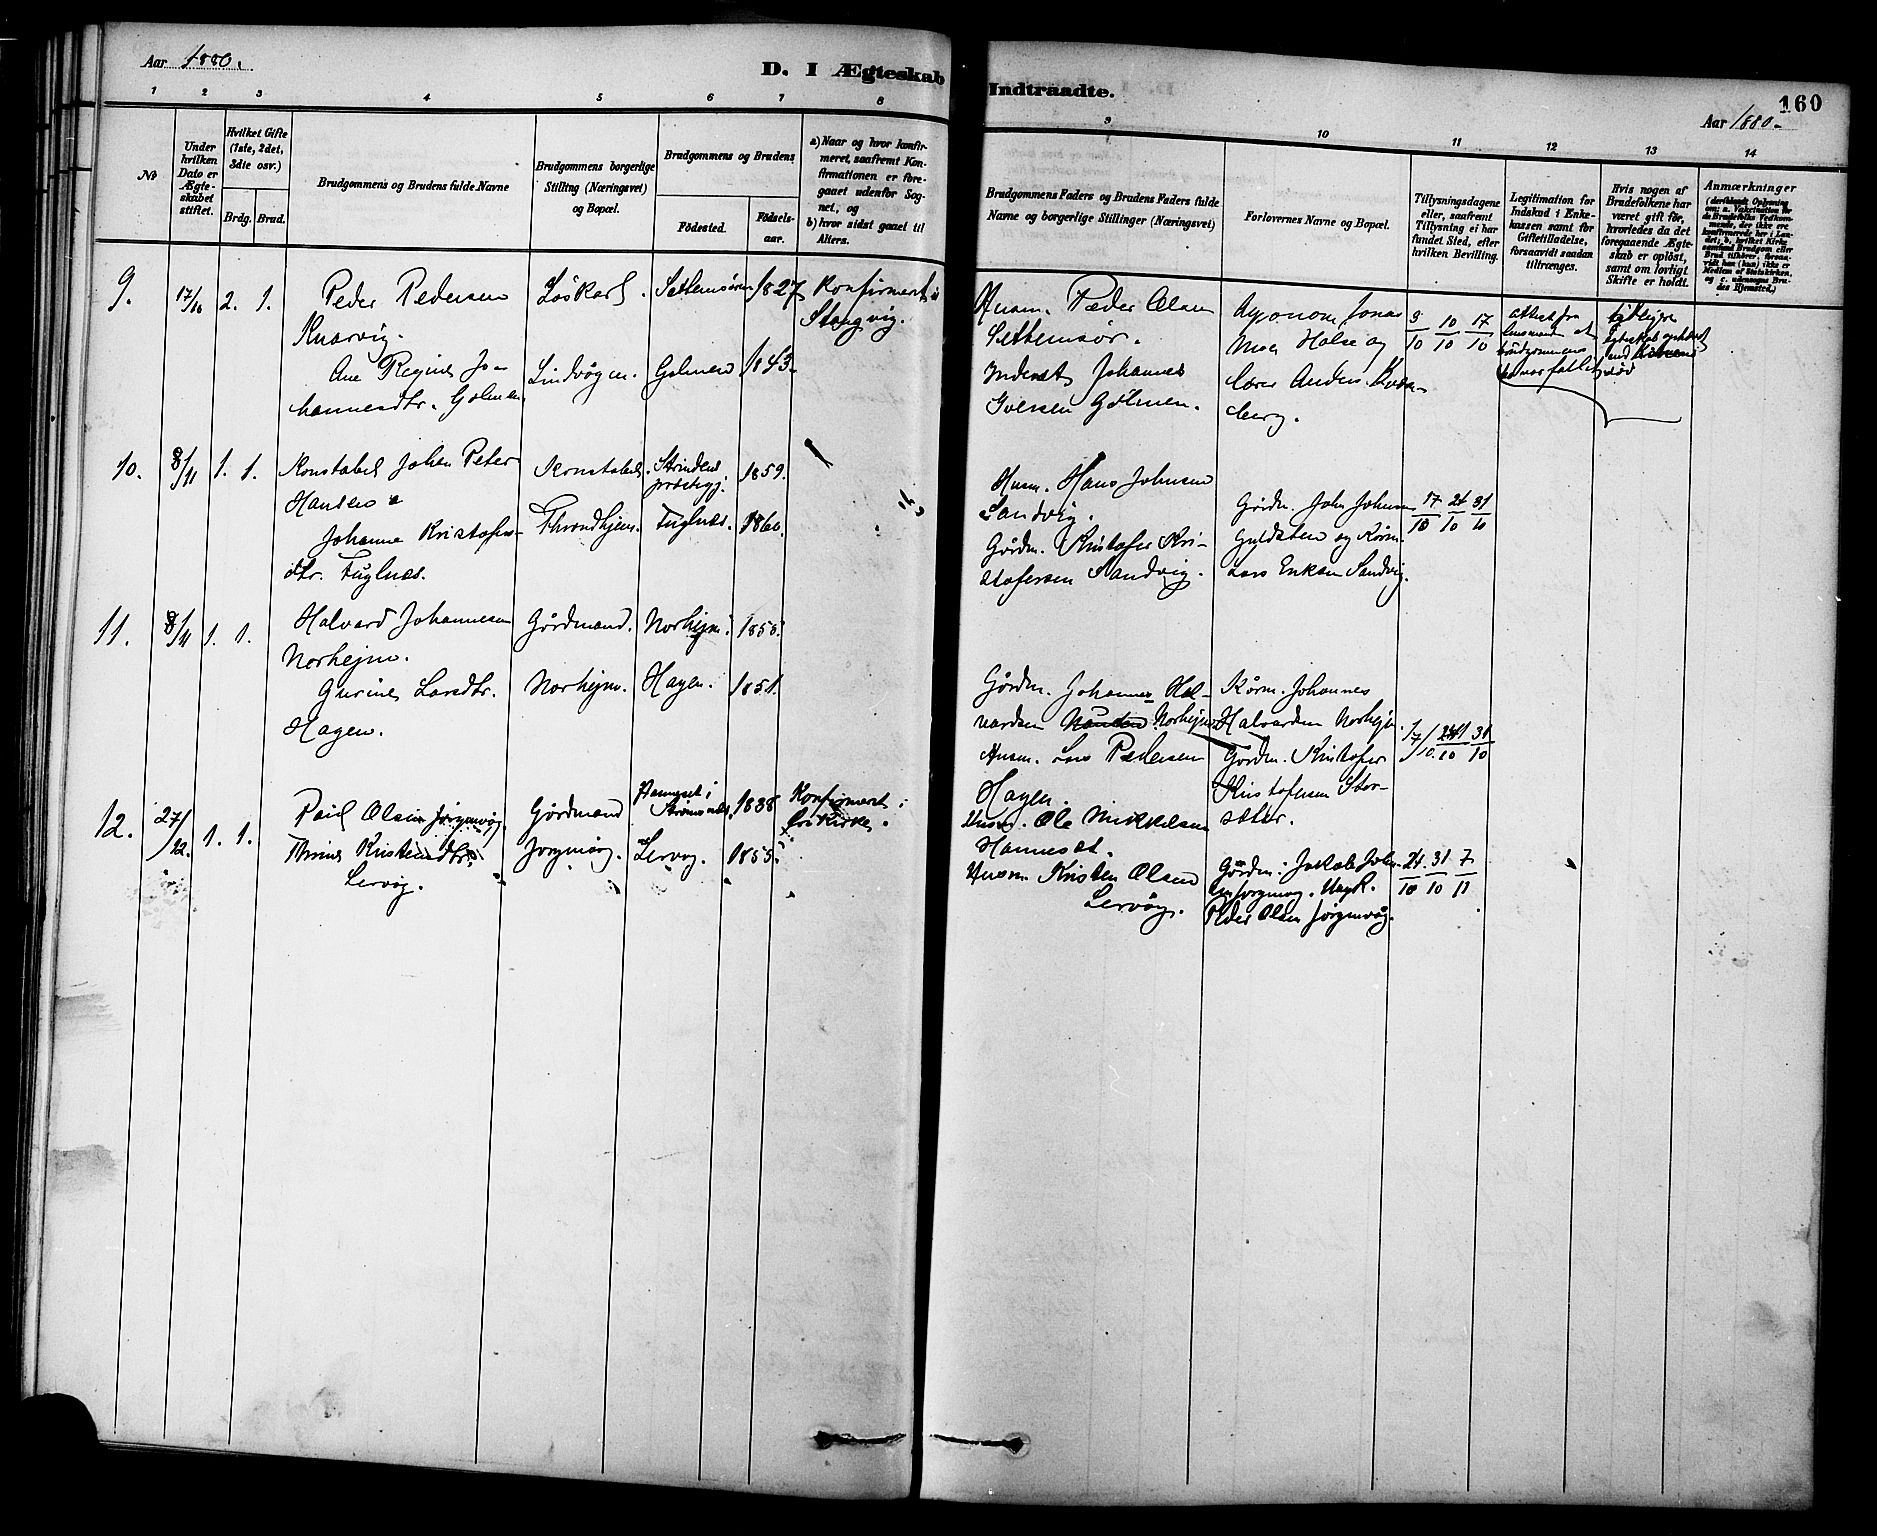 Aar 1880.
D. I Ægteskab
Indtraadte.
160
Aar 1880.
1 2 3 4 5 6 7 8
9 10 11 12 13 14
No
Under hvilken Dato er Ægteskabet stiftet.
Hvilket Gifte (1ste, 2det, 3die osv.)
Brdg. Brud.
Brudgommens og Brudens fulde Navne
Brudgommens borgerlige Stilling (Næringsvei) og Bopæl.
Brudgommens og Brudens
Födested.
Födselsaar.
a) Naar og hvor konfirmeret, saafremt Konfirmationen er foregaaet udenfor Sognet, og
b) hvor sidst gaaet til Alters.
Brudgommens Faders og Brudens Faders fulde Navne og borgerlige Stillinger (Næringsvei)
Forlovernes Navne og Bopæl.
Tillysningsdagene eller, saafremt Tillysning ei har fundet Sted, efter hvilken Bevilling.
Legitimation for Indskud i Enkekassen samt for Giftetilladelse, forsaavidt saadan tiltrænges.
Hvis nogen af Brudefolkene har været gift för, hvorledes da det foregaaende Ægteskab er oplöst, samt om lovligt Skifte er holdt.
Anmærkninger
9. 17/10 2. 1. Peder Pedersen
Knarvig.
Ane Regine Jo-
hannesdtr. Golmen
Löskarl.
Lindvågen.
Settemsören 1827
Golmen 1843.
Konfirmert i
Stangvig.
Husm. Peder Olsen
Settemsör.
Inderst Johannes
Iversen Golmen.
Agronom Jonas
Moe Halse og
Lærer Anders Kvan-
berg.
3/10 10/10 17/10
10. 8/11 1. 1. Konstabel Johan Peter
Hansen
Johanne Kristofers-
dtr. Fuglnes.
Konstabel.
Throndhjem.
Strindens
præstegj. 1859.
Fuglnes. 1860.
Husm. Hans Johnsen
Sandvig.
Gårdm. Kristofer Kri-
stofersen Sandvig.
Gårdm. John Johnsen
Guldsten og Kårm.
Lars Eriksen Sandvig.
17/10 24/10 31/10
11. 8/11 1. 1. Halvard Johannesen
Norhejm.
Gurine Larsdtr.
Hagen.
Gårdmand.
Norhejm.
Norhejm. 1855.
Hagen. 1851.
Gårdm. Johannes Hal-
vardsen Norhejm
Husm. Lars Pedersen
Hagen.
Kårm. Johannes
Halvardsen Norhejm.
Gårdm. Kristofer
Kristofersen Stor-
sæter.
17/10. 24/10 31/10
12. 27/12. 1. 1. Paul Olsen Jörgenvåg.
Thrine Kristensdtr.
Lervåg.
Gårdmand
Jörgenvåg.
Hanneset i
Strömsnes. 1838
Lervåg. 1855.
Konfirmeret i
Brikirke.
Husm. Ole Mikkelsen
Hanneset.
Husm Kristen Olsen
Lervåg.
Gårdm. Jakob John-
sen Jörgenvåg. Ungk.
Peder Olsen Jörgenvåg.
24/10 31/10 7/11